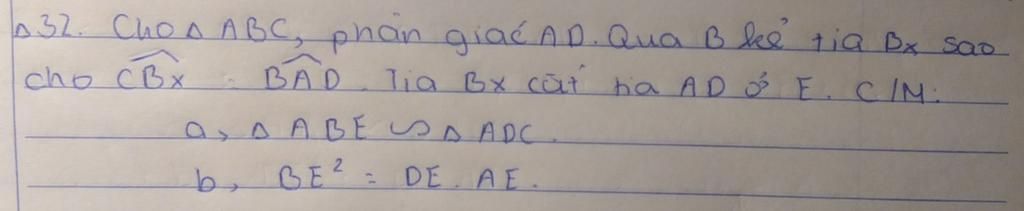 Δ32. Cho Δ ABC, phân giác AD. Qua B kẻ tia Bx sao
cho CBx = BAD. Tia Bx cắt tia AD ở E. C/M:
a, Δ ABE ∽ Δ ADC.
b, BE² = DE. AE.